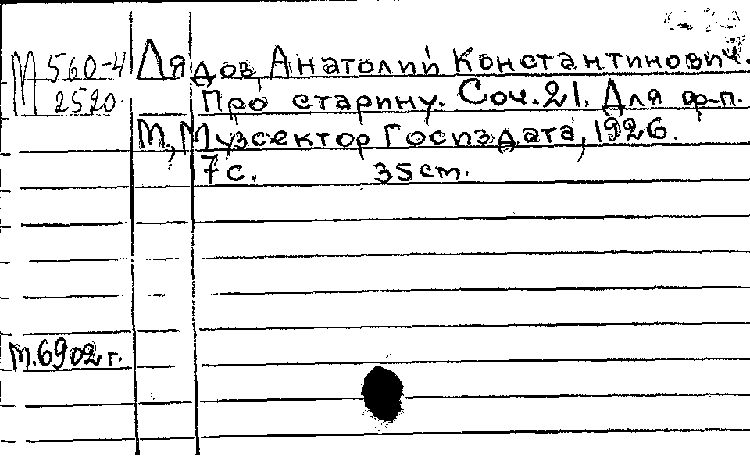 М 560-4
2520
Лядов, Анатолий Константинович.
Про старину. Соч. 21. Для ф-п.
М., Музсектор Госиздата, 1926.
7 с. 35 cm.
т.6902 г.